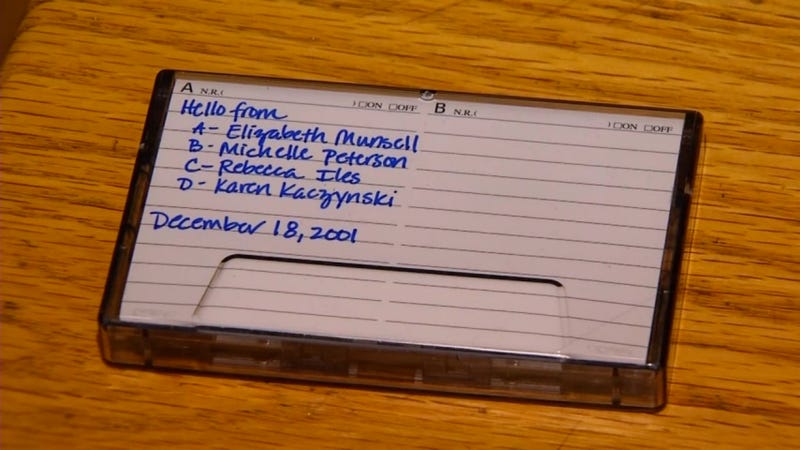 A N.R.( ) □ON □OFF B N.R.( ) □ON □OFF
Hello from
A- Elizabeth Munsell
B- Michelle Peterson
C- Rebecca Iles
D- Karen Kaczynski
December 18, 2001